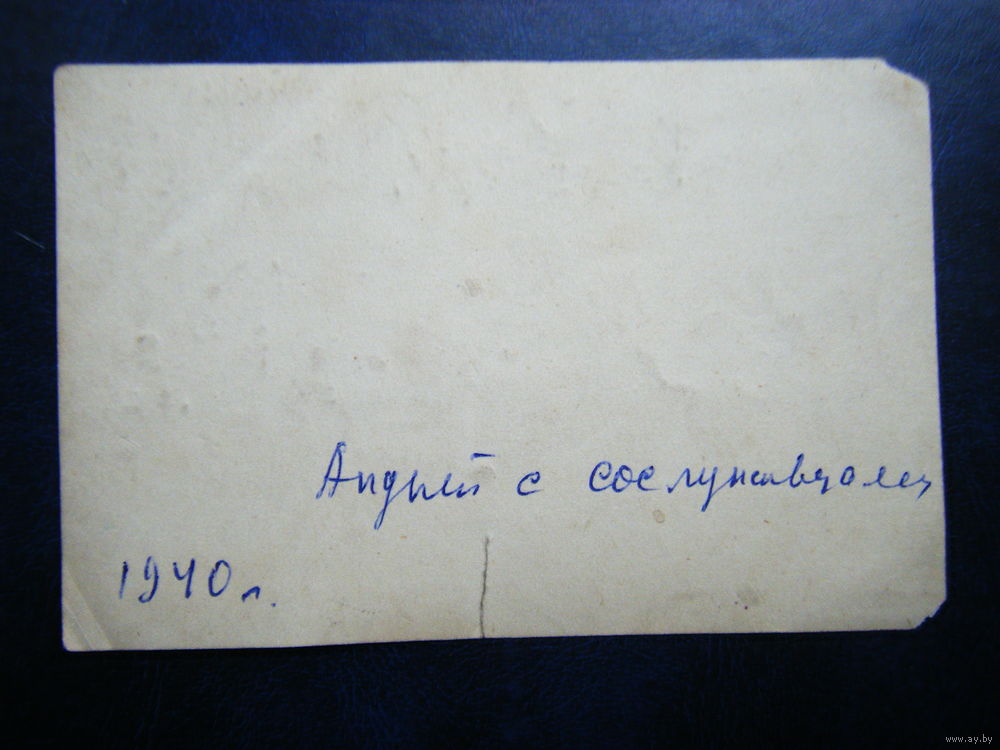 Андрей с сослуживцами
1940 г.
www.ay.by